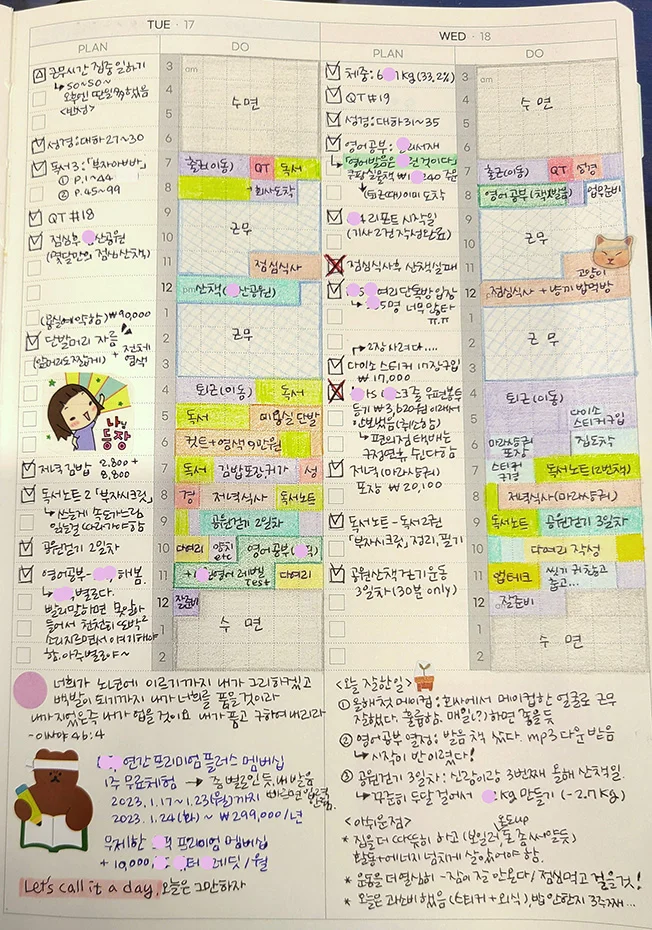 TUE · 17
PLAN
DO
근무시간 집중 일하기
↳ 50~50~
오늘엔 딴일 多했음
<반성>
성경: 대하 27~30
독서 3: 「부자아빠」
① p.1~44
② p.45~99
QT #18
점심후 산공원
(몇달만의 점심산책)
₩90,000
단발머리 자름
+ 전체
염색
나님
등장
저녁 김밥 2,800 +
8,800
독서노트 2 「부자시크릿」
공원걷기 2일차
영어공부- 해봄.
↳ 별로다.
발리말하면 못알아
들어서 천천히 또박2
소리지르면서 얘기해야
함. 아주별로야~
3 am
4
5
6
7
8
9
10
11
12 pm
1
2
3
4
5
6
7
8
9
10
11
12
1
2
수면
출근(이동) QT 독서
회사도착
근무
점심식사
산책( 산공원)
근무
퇴근(이동) 독서
독서 미용실 단발
컷트+염색 9만원
독서 김밥포장, 귀가 성
경 저녁식사 독서노트
공원걷기 2일차
다여리 양치 etc 영어공부( )
+1 영어 레벨 Test 다여리
잘준비
수면
WED · 18
PLAN
DO
체중: 6 7kg (33.2%)
QT #19
성경: 대하31~35
영어공부: 리서재
↳ 「영어발음은 건이다」
쿠팡 실물책 ₩1 240 주문
↳ (퇴근때) 이미 도착
리포트 시작일
(기사 2건 작성완료)
점심식사후 산책실패
여리 단톡방 입장
↳ 5명 너무많타
ㅠㅠ
↗ 2장 사려다....
다이소 스티커 17장구입
₩17,000
우편봉투
등기 ₩3,620원 이래서
안보냈음 (취소함)
↳ 편의점택배는
구정연휴 쉰다함
저녁(마라샹궈)
포장 ₩20,100
독서노트 - 독서2권
「부자시크릿」 정리, 필기
공원산책 걷기운동
3일차 (30분 only)
3 am
4
5
6
7
8
9
10
11
12 pm
1
2
3
4
5
6
7
8
9
10
11
12
1
2
수면
출근(이동) QT 성경
영어공부 (책,발음) 업무준비
근무
고양이
점심식사 + 냥끼 밥먹방
근무
퇴근(이동)
다이소
스티커구입
마라샹궈
포장 집도착
스티커
구경 독서노트(2번책)
저녁식사(마라샹궈)
독서노트 공원걷기 3일차
다여리 작성
앱테크 씻기 귀찮고
춥고...
잘준비
수면
너희가 노년에 이르기까지 내가 그리하겠고
백발이 되기까지 내가 너희를 품을것이라
내가 지었은즉 내가 업을것이요 내가 품고 구하여내리라
- 이사야 46:4
연간 프리미엄 플러스 멤버십
1주 무료체험 → 좀 별로인 듯
2023.1.17~1.23(월)까지
2023.1.24(화)~ ₩299,000/년
무제한 프리미엄 멤버십
+ 10,000, 레딧 / 월
Let's call it a day. 오늘은 그만하자
<오늘 잘한일>
① 올해 첫 메이컵: 회사에서 메이컵한 얼굴로 근무
잘했다. 훌륭함. 매일(?)하면 좋을듯
② 영어공부 열정: 발음 책 샀다. mp3 다운 받음
↳ 시작이 반이랬다!
③ 공원걷기 3일차: 신랑이랑 3번째 올해 산책일.
↳ 꾸준히 두달 걸어서 2kg 만들기 (-2.7kg)
<아쉬운점>
* 집을 더 따뜻히 하고 (보일러, 돈 좀 써얄듯)
온도up
활동+에너지 넘치게 살았어야 함.
* 운동을 더 열심히 - 잠이 잘 안온다 / 점심먹고 걸을것!
* 오늘은 과소비했음 (스티커+외식), 밥 안한지 3주째...